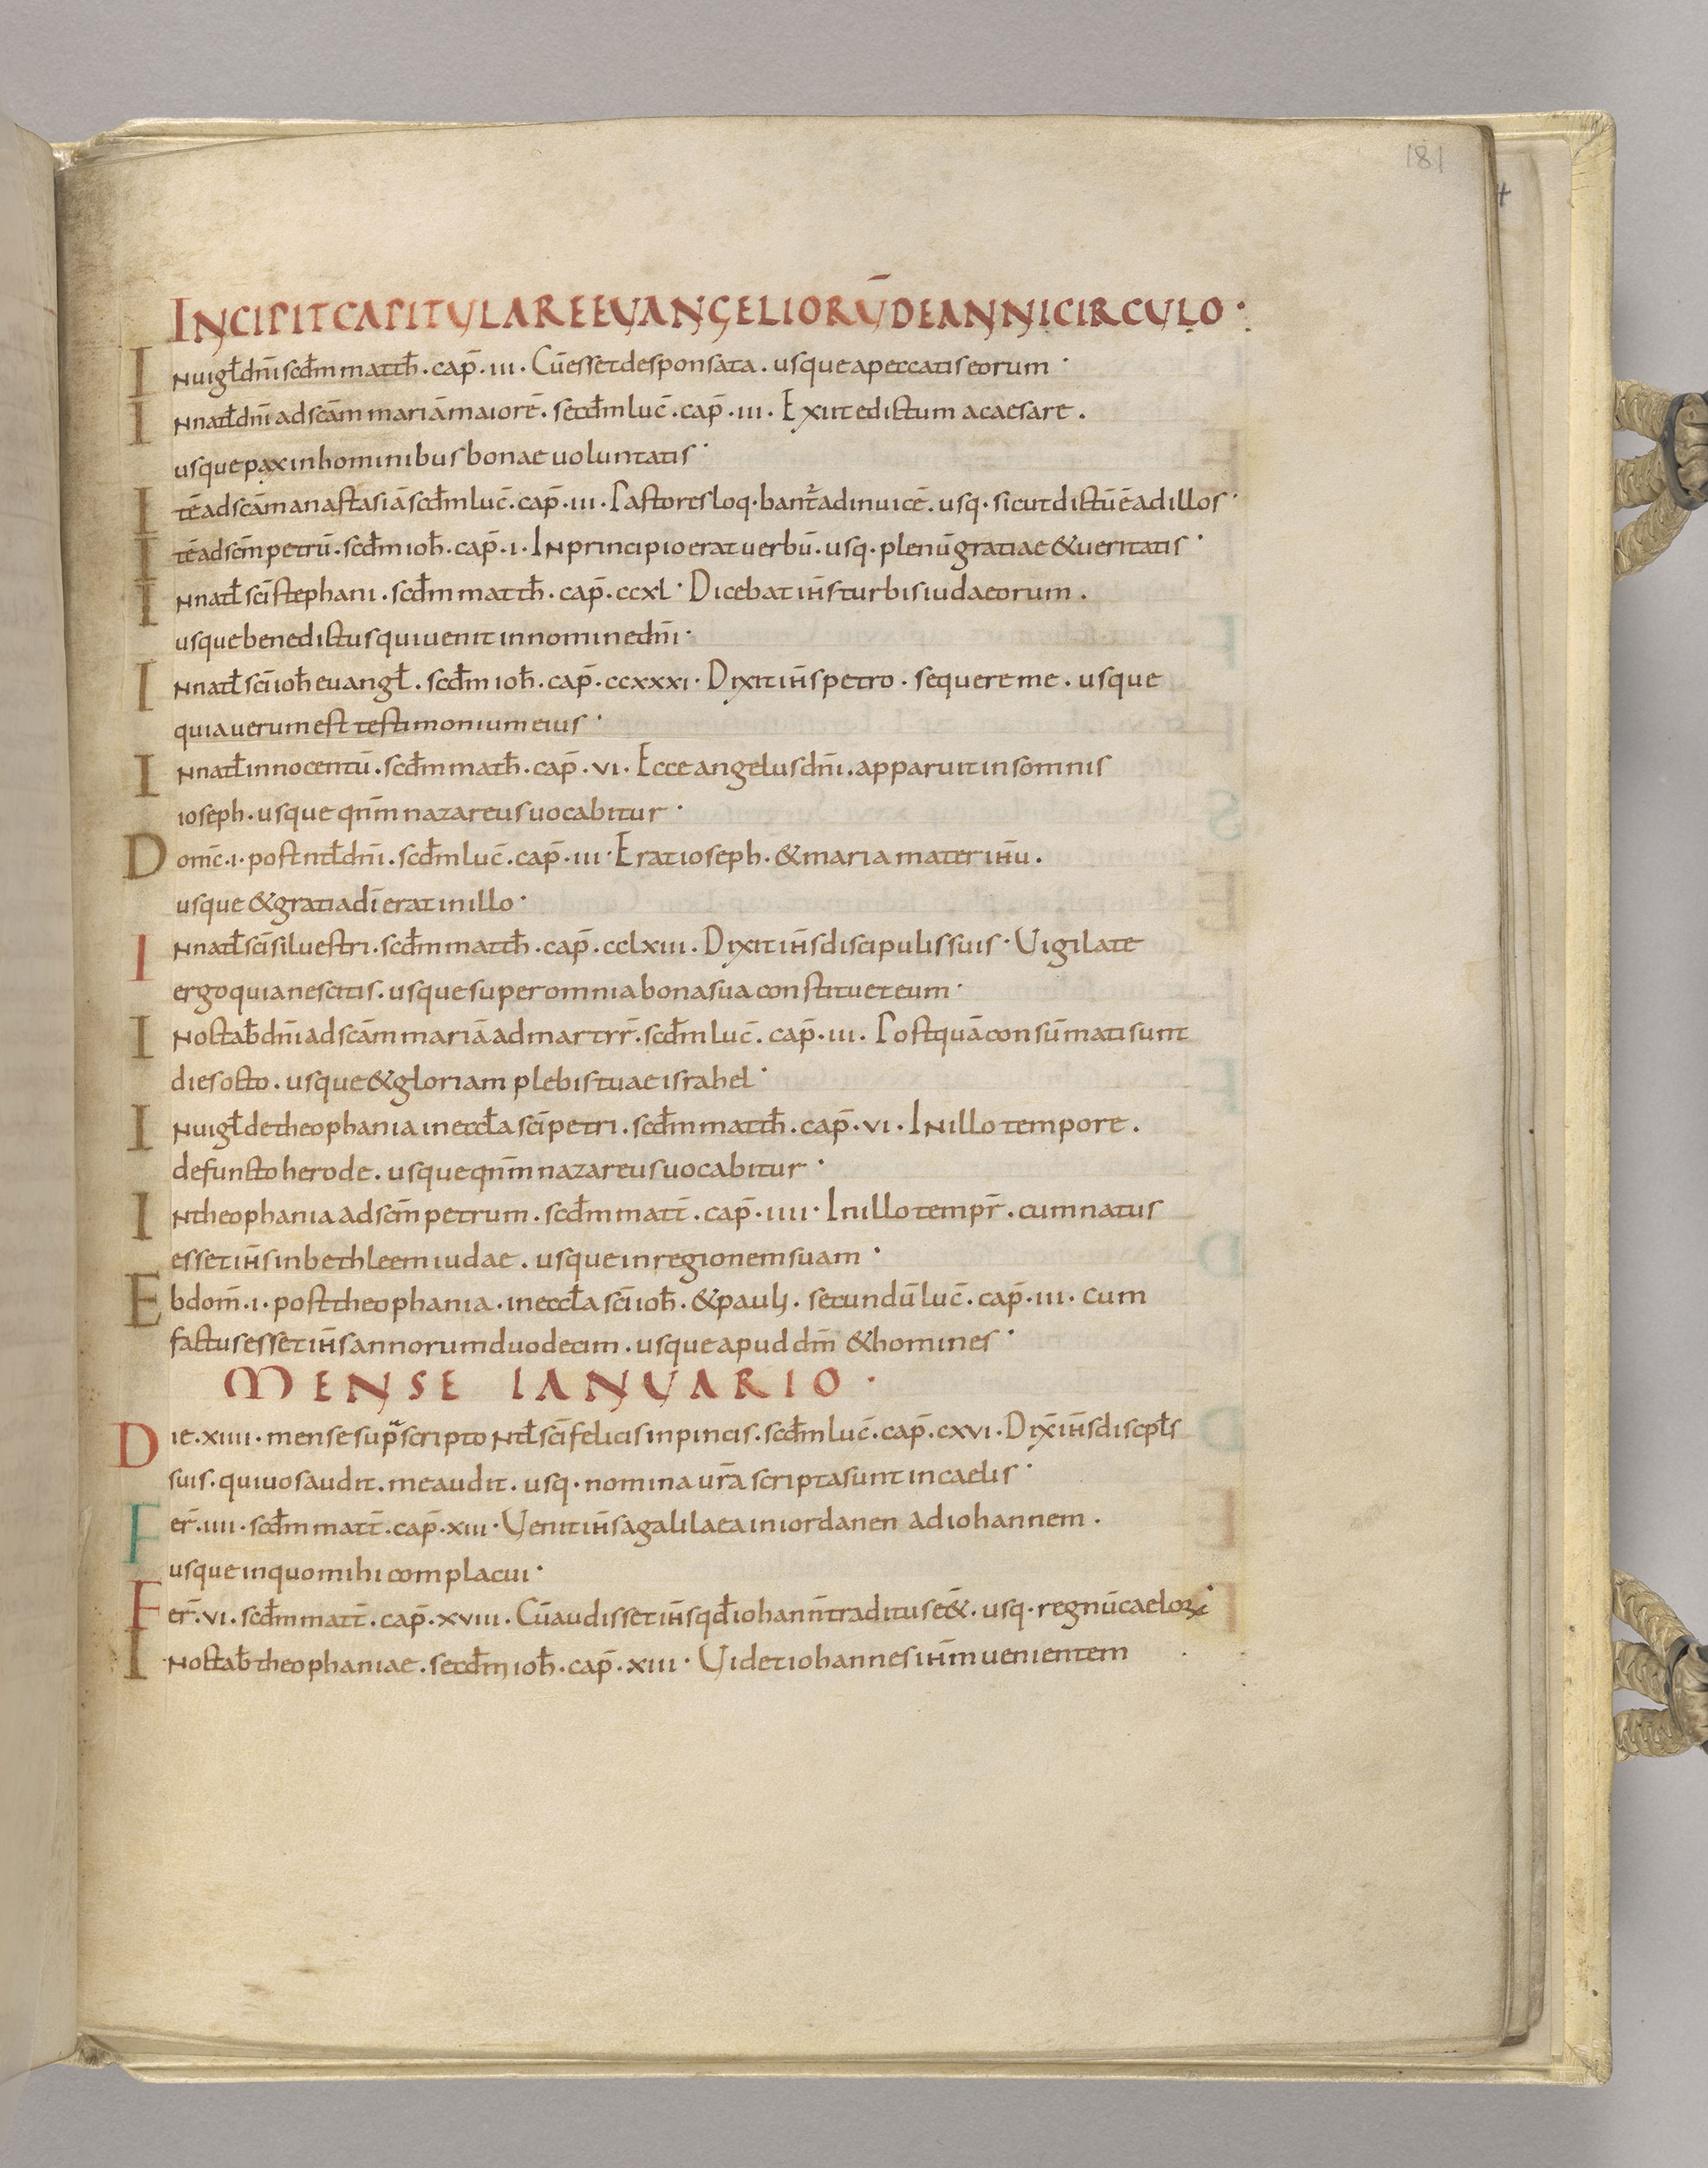 181
INCIPIT CAPITULARE EVANGELIORŪ DE ANNI CIRCULO ·
In uigł dñi scđm matth̄ · cap̄ · iii · Cū esset desponsata · usque a peccatis eorum ·
In natł dñi ad scām mariā maiorē · secđm luc̄ · cap̄ · iii · Exiit edictum a caesare ·
usque pax in hominibus bonae uoluntatis ·
Itē ad scām anastasiā scđm luc̄ · cap̄ · iii · Pastores loq· bant̄ ad inuicē · usq · sicut dictū ē ad illos ·
Itē ad scm̄ petrū · scđm ioh̄ · cap̄ · i · In principio erat uerbū · usq · plenū gratiae & ueritatis ·
In natł sci stephani · scđm matth̄ · cap̄ · ccxl · Dicebat ih̄s turbis iudaeorum ·
usque benedictus qui uenit in nomine dñi ·
In natł sci ioh̄ euangł · scđm ioh̄ · cap̄ · ccxxxi · Dixit ih̄s petro · sequere me · usque
quia uerum est testimonium eius ·
In natł innocentū · scđm math̄ · cap̄ · vi · Ecce angelus dñi · apparuit in somnis
ioseph · usque qnm̄ nazareus uocabitur ·
Domc̄ · i · post ntł dñi · scđm luc̄ · cap̄ · iii · Erat ioseph · & maria mater ih̄u ·
usque & gratia dī erat in illo ·
In natł sci siluestri · scđm matth̄ · cap̄ · cclxiii · Dixit ih̄s discipulis suis · Uigilate
ergo quia nescitis · usque super omnia bona sua constituet eum ·
In octab̄ dñi ad scām mariā ad martrr̄ · scđm luc̄ · cap̄ · iii · Postquā consūmati sunt
dies octo · usque & gloriam plebis tuae israhel ·
In uigł de theophania in eccła sci petri · scđm matth̄ · cap̄ · vi · In illo tempore ·
defuncto herode · usque qnm̄ nazareus uocabitur ·
In theophania ad scm̄ petrum · scđm matt̄ · cap̄ · iiii · In illo tempr̄ · cum natus
esset ih̄s in bethleem iudae · usque in regionem suam ·
Ebdom̄ · i · post theophania · in eccła sci ioh̄ · & pauli · secundū luc̄ · cap̄ · iii · cum
factus esset ih̄s annorum duodecim · usque apud dm̄ & homines ·
MENSE IANUARIO ·
Die · xiiii · mense sup̄scripto Ntł sci felicis in pincis · scđm luc̄ · cap̄ · cxvi · Dix̄ ih̄s discipłs
suis · qui uos audit · me audit · usq · nomina ur̄a scripta sunt in caelis ·
Fer̄ · iiii · scđm matt̄ · cap̄ · xiii · Uenit ih̄s a galilaea in iordanen ad iohannem ·
usque in quo mihi complacui ·
Fer̄ · vi · scđm matt̄ · cap̄ · xviii · Cū audisset ih̄s qđ iohann̄ traditus e&̄ · usq · regnū caeloꝝ ·
In octab̄ theophaniae · secđm ioh̄ · cap̄ · xiii · Uidet iohannes ih̄m uenientem